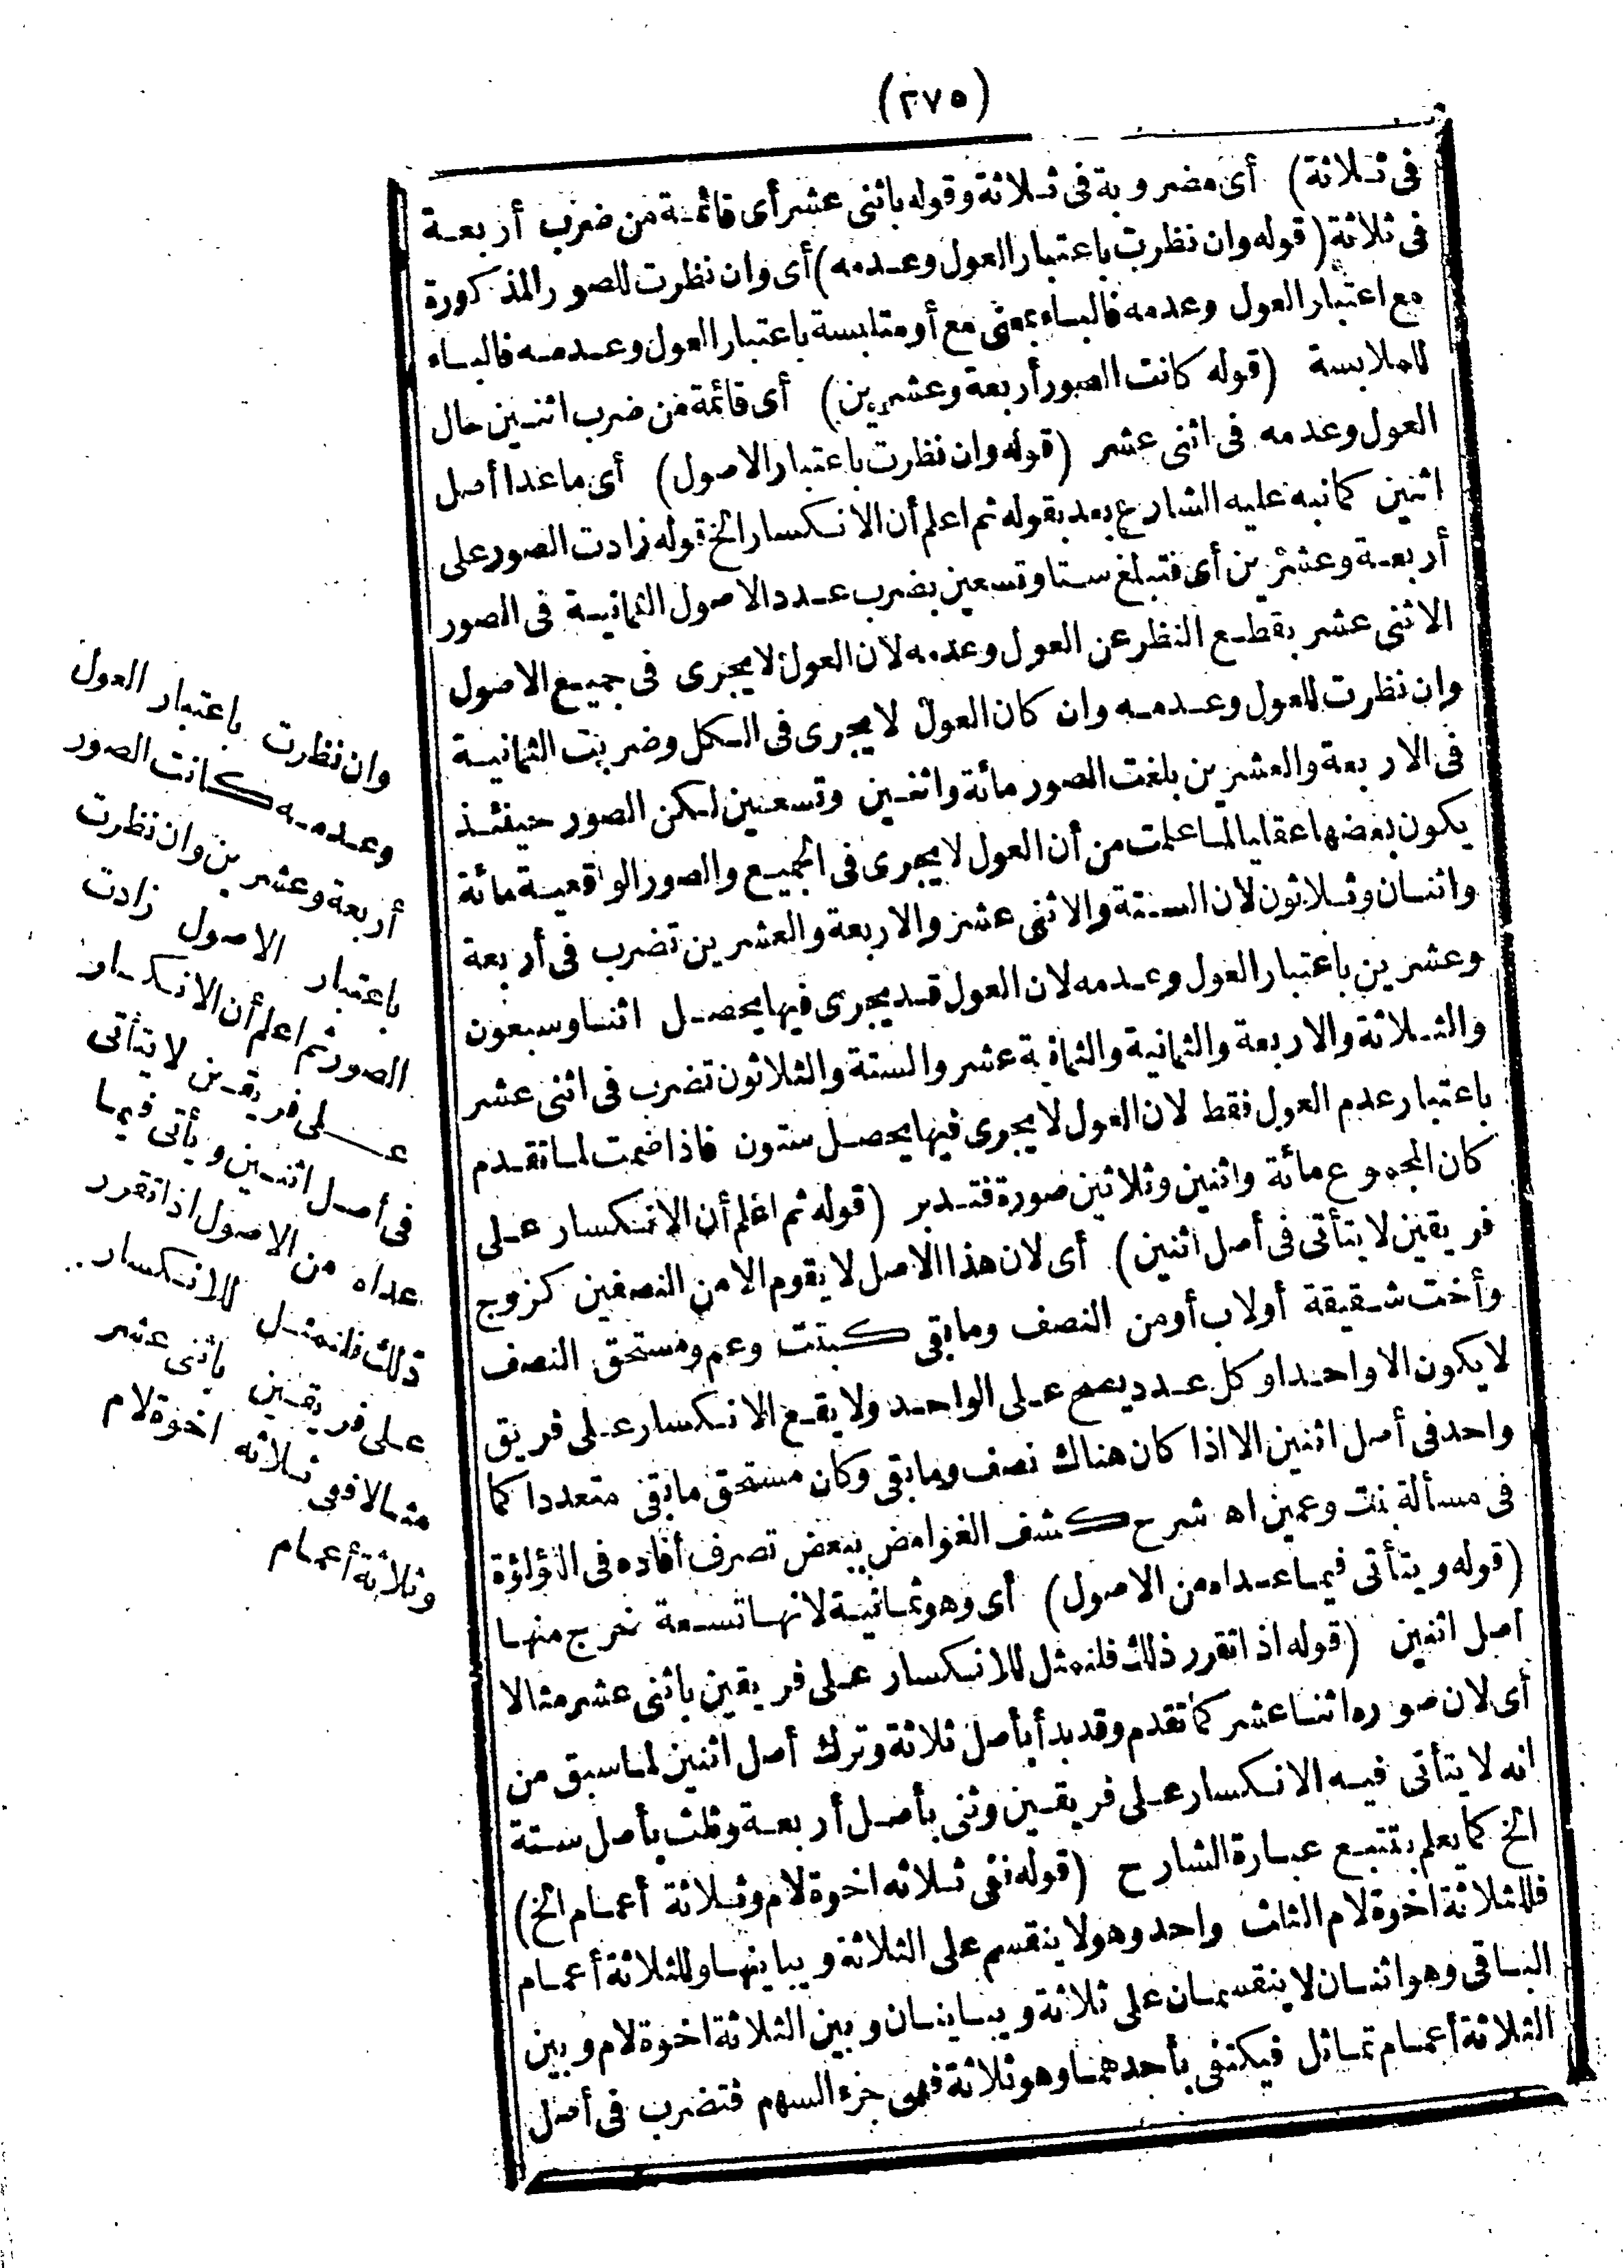 (٢٧٥)
فى ثلاثة) أى مضروبة فى ثلاثة وقوله باثنى عشر أى قائمة من ضرب أربعة
فى ثلاثة (قوله وان نظرت باعتبار العول وعدمه) أى وان نظرت للصور المذكورة
مع اعتبار العول وعدمه فالباء بمعنى مع أو متلبسة باعتبار العول وعدمه فالباء
للملابسة (قوله كانت الصور أربعة وعشرين) أى قائمة من ضرب اثنين حال
العول وعدمه فى اثنى عشر (قوله وان نظرت باعتبار الاصول) أى ماعدا أصل
اثنين كما نبه عليه الشارع بعد بقوله ثم اعلم أن الانكسار الخ قوله زادت الصور على
أربعة وعشرين أى فتبلغ ستا وتسعين بضرب عدد الاصول الثمانية فى الصور
الاثنى عشر بقطع النظر عن العول وعدمه لان العول لا يجرى فى جميع الاصول
وان نظرت للعول وعدمه وان كان العول لا يجرى فى الكل وضربت الثمانية
فى الاربعة والعشرين بلغت الصور مائة واثنين وتسعين لكن الصور حينئذ
يكون بعضها عقليا لما علمت من أن العول لا يجرى فى الجميع والصور الواقعية مائة
واثنان وثلاثون لان الستة والاثنى عشر والاربعة والعشرين تضرب فى أربعة
وعشرين باعتبار العول وعدمه لان العول قد يجرى فيها يحصل اثنا وسبعون
والثلاثة والاربعة والثمانية والثمانية عشر والستة والثلاثون تضرب فى اثنى عشر
باعتبار عدم العول فقط لان العول لا يجرى فيها يحصل ستون فاذا ضمت لما تقدم
كان المجموع مائة واثنين وثلاثين صورة فتدبر (قوله ثم اعلم أن الانكسار على
فريقين لا يتأتى فى أصل اثنين) أى لان هذا الاصل لا يقوم الا من النصفين كزوج
وأخت شقيقة أولاب أو من النصف وما بقى كبنت وعم ومستحق النصف
لا يكون الا واحدا وكل عدد يصح على الواحد ولا يقع الانكسار على فريق
واحد فى أصل اثنين الا اذا كان هناك نصف وما بقى وكان مستحق ما بقى متعددا كما
فى مسألة بنت وعمين اه شرح كشف الغوامض ببعض تصرف أفاده فى اللؤلؤة
(قوله ويتأتى فيما عداه من الاصول) أى وهو ثمانية لانها تسعة خرج منها
أصل اثنين (قوله اذا تقرر ذلك فلنمثل للانكسار على فريقين باثنى عشر مثالا
أى لان صوره اثنا عشر كما تقدم وقد بدأ بأصل ثلاثة وترك أصل اثنين لما سبق من
انه لا يتأتى فيه الانكسار على فريقين وثنى بأصل أربعة وثلث بأصل ستة
الخ كما يعلم بتتبع عبارة الشارح (قوله ففى ثلاثه اخوة لام وثلاثة أعمام الخ)
فللثلاثة اخوة لام الثلث واحد وهو لا ينقسم على الثلاثة ويباينها وللثلاثة أعمام
الباقى وهو اثنان لا ينقسمان على ثلاثة ويباينان وبين الثلاثة اخوة لام وبين
الثلاثة أعمام تماثل فيكتفى بأحدهما وهو ثلاثة فهى جزء السهم فتضرب فى أصل
وان نظرت باعتبار العول
وعدمه كانت الصور
أربعة وعشرين وان نظرت
باعتبار الاصول زادت
الصور ثم اعلم أن الانكسار
على فريقين لا يتأتى
فى أصل اثنين ويأتى فيما
عداه من الاصول اذا تقرر
ذلك فلنمثل للانكسار
على فريقين باثنى عشر
مثالا ففى ثلاثه اخوة لام
وثلاثة أعمام